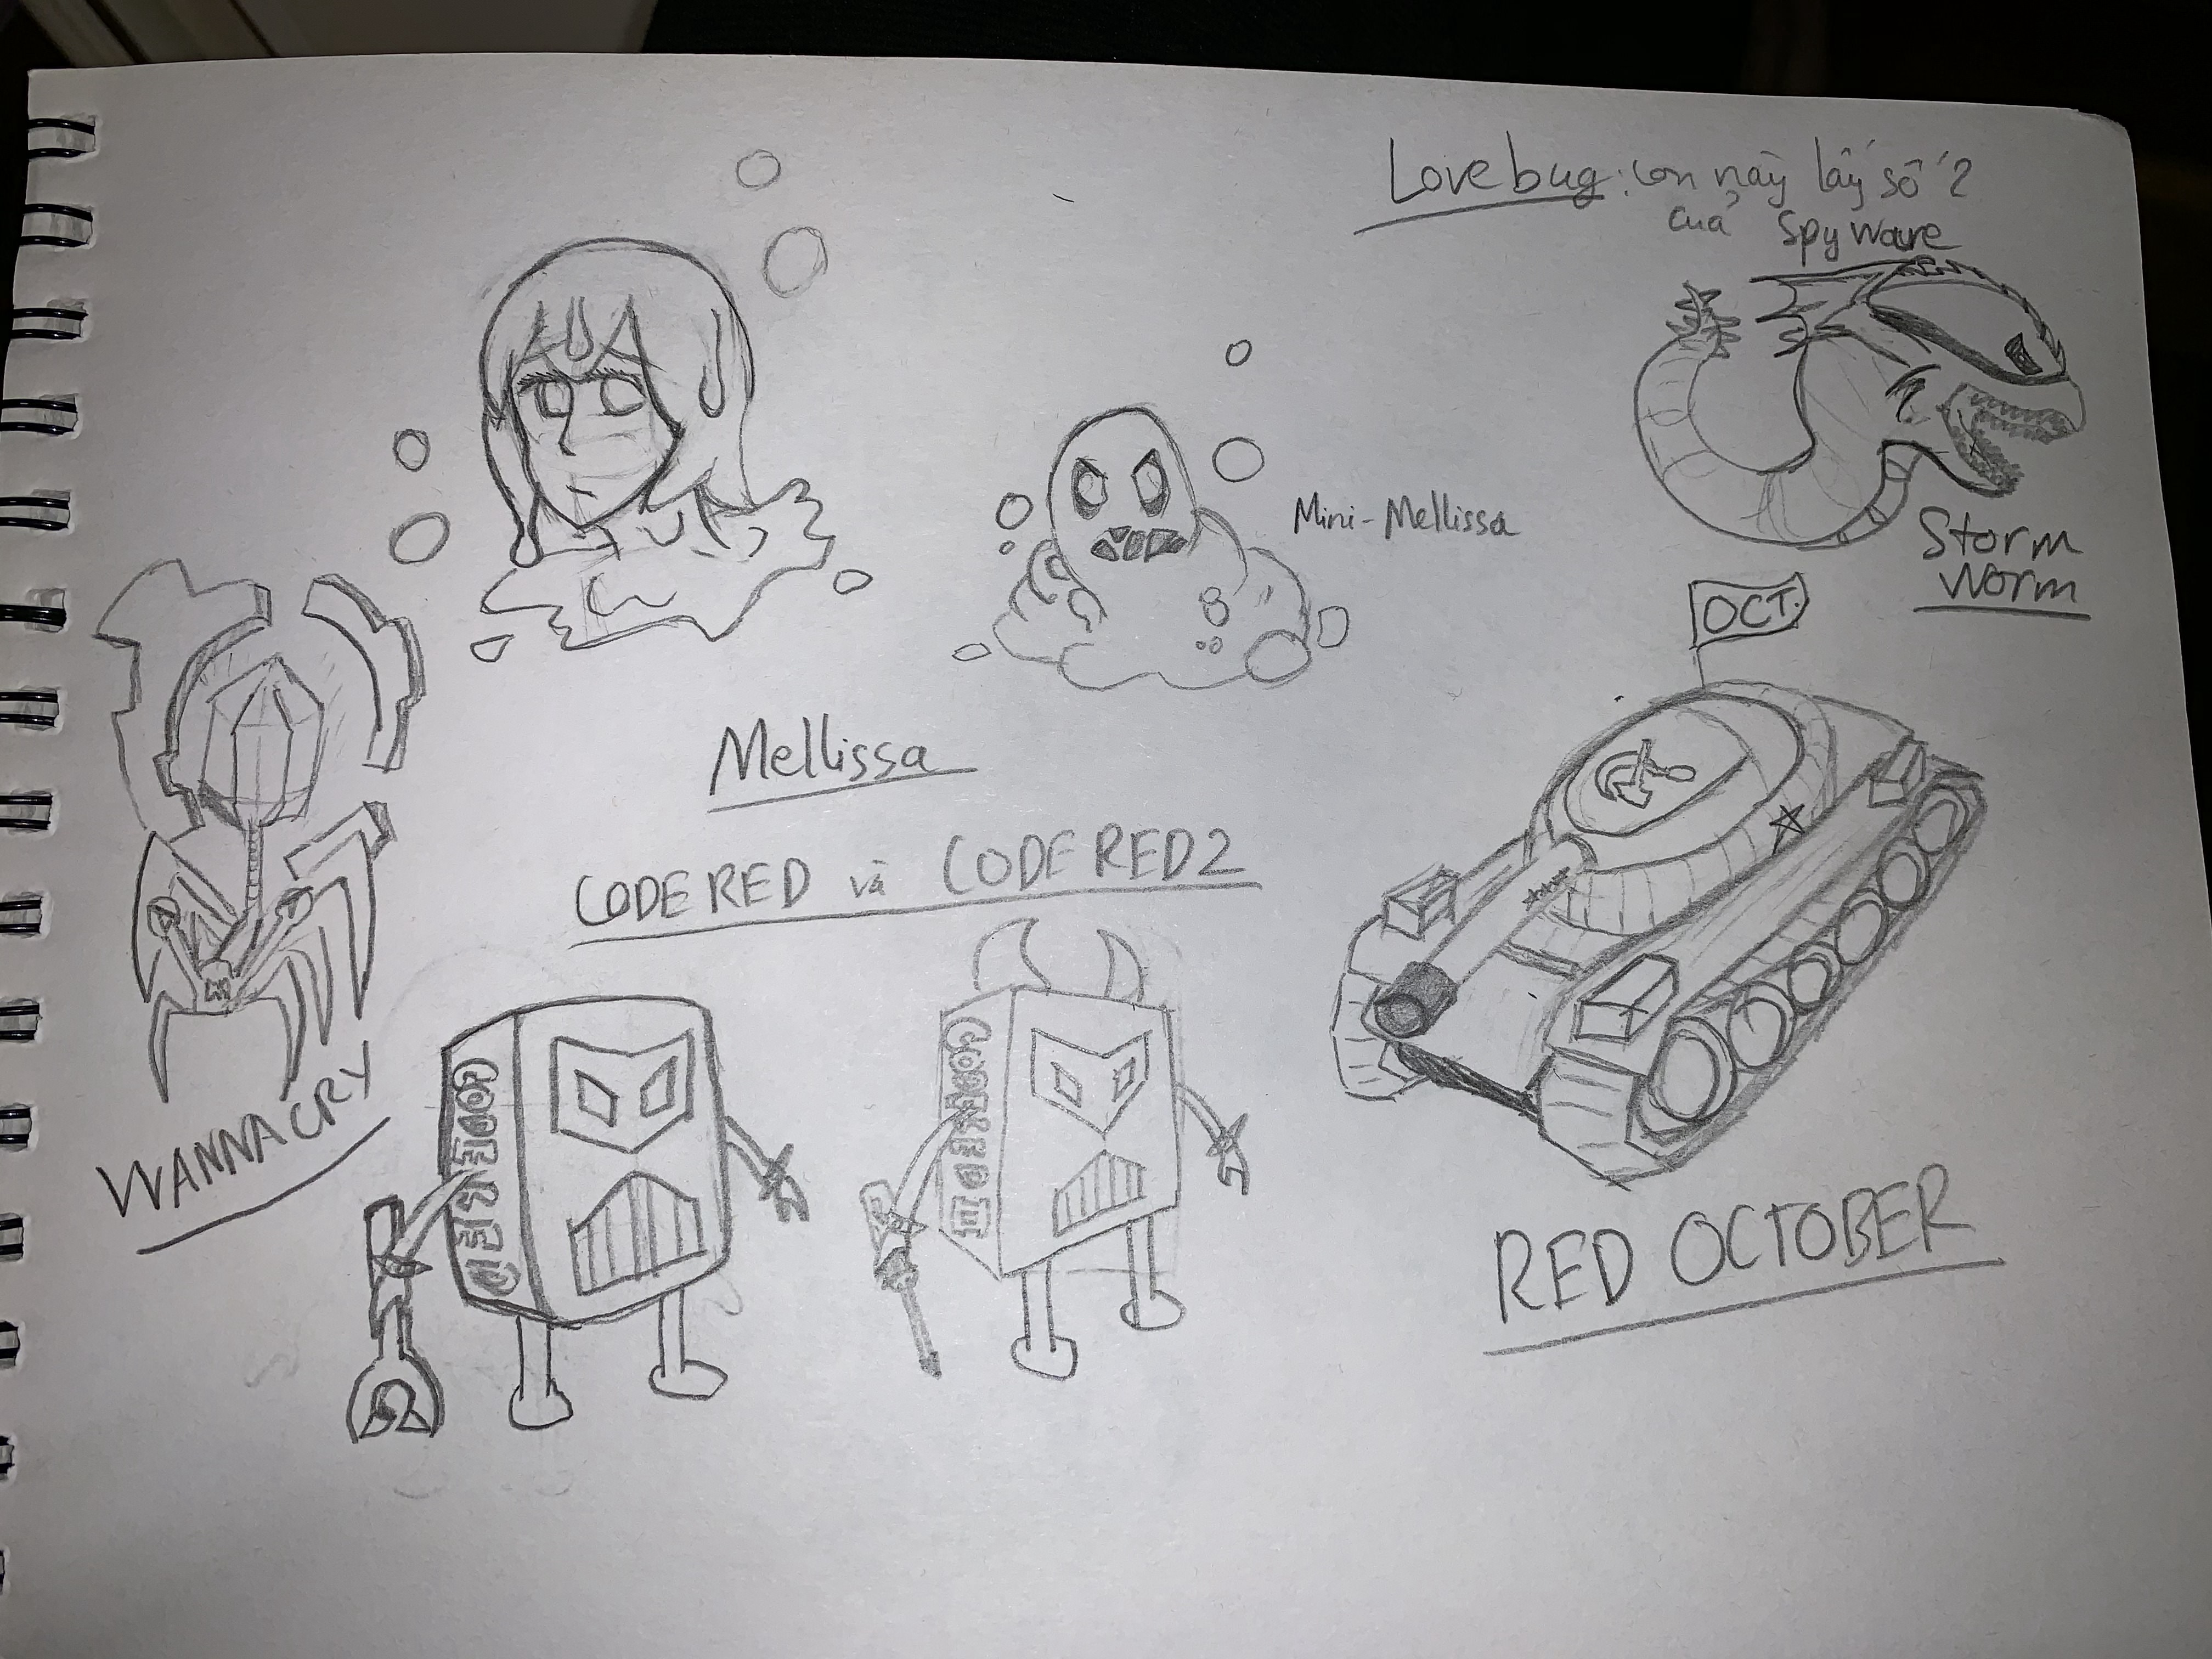 Lovebug: con này lấy số 2
của Spyware
Mini-Mellissa
Storm
Worm
OCT.
Mellissa
CODE RED và CODE RED 2
WANNACRY
CODE RED
CODE RED III
RED OCTOBER